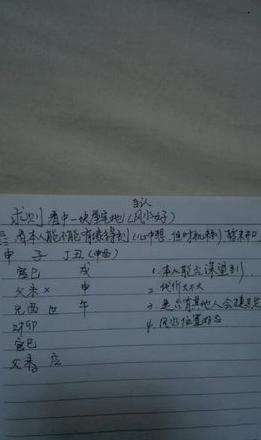 自认
求测 看中一块屋宅地(风水好)
看本人能不能有缘得到(心中想,但时机未到)暂未开口
申 子 丁丑(申酉)
官巳 戌
父未 × 申
兄酉 世 午
财卯
官巳
父未 应
1. 本人能否谋望到
2. 代价大不大
3. 是否有其他人会
4. 风水位置好否